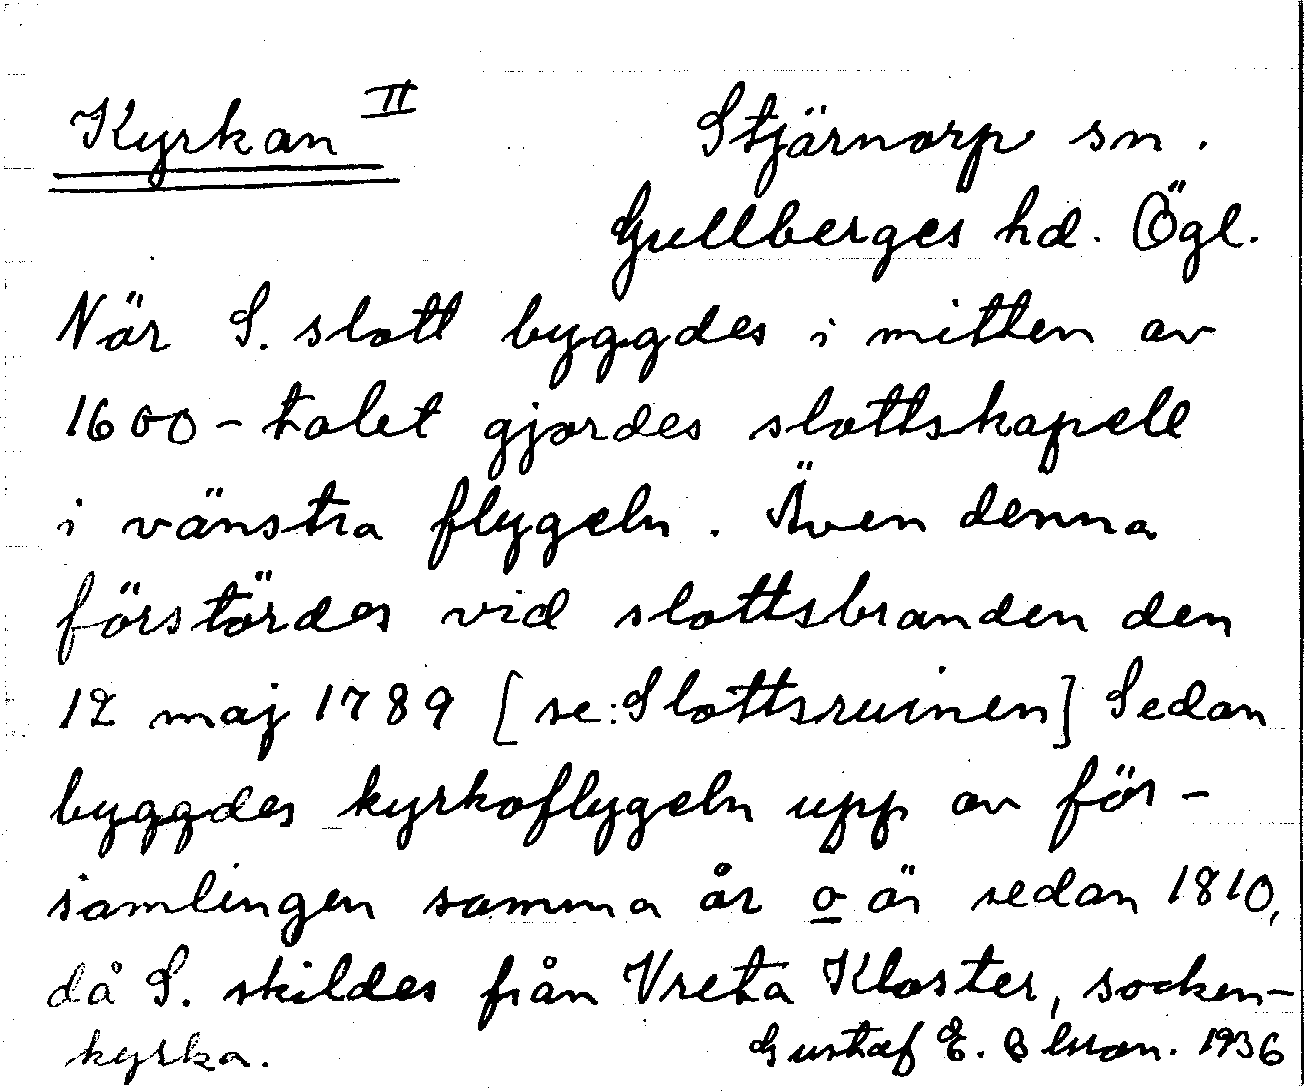 Kyrkan II
Stjärnorp sn.
Gullberges hd. Ögl.
När S. slott byggdes i mitten av
1600-talet gjordes slottskapell
i vänstra flygeln. Även denna
förstördes vid slottsbranden den
12 maj 1789 [se: Slottsruinen] Sedan
byggdes kyrkoflygeln upp av för-
samlingen samma år o är sedan 1810,
då S. skildes från Vreta Kloster, socken-
kyrka.
Gustaf E. Olsson. 1936